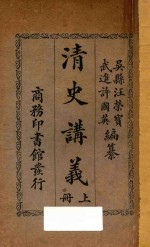 吳縣汪榮寶
武進許國英
編纂
清史講義
上冊
商務印書館發行